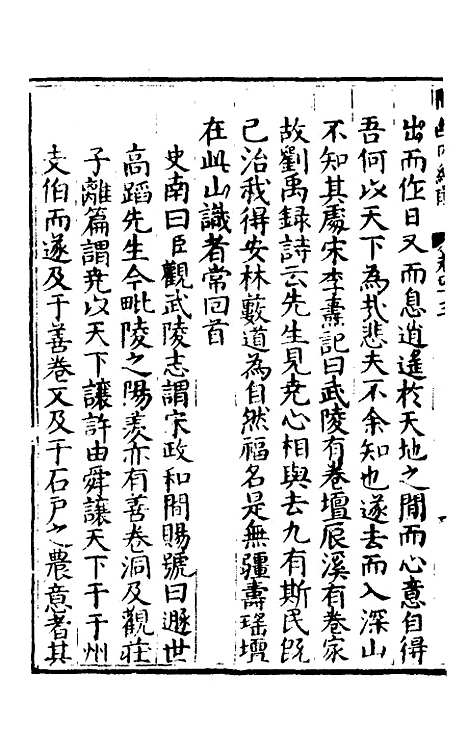 出而作日又而息逍遥於天地之間而心意自得
吾何以天下為哉悲夫不余知也遂去而入深山
不知其處宋李燾記曰武陵有卷壇辰溪有卷冢
故劉禹録詩云先生見尭心相與去九有斯民旣
已治我得安林藪道為自然福名是無疆壽瑶壇
在此山識者常回首
史南曰臣觀武陵志謂宋政和間賜號曰遯世
高蹈先生今毗陵之陽羨亦有善卷洞及觀莊
子離篇謂尭以天下讓許由舜讓天下于于州
支伯而遂及于善卷又及于石戸之農意者其